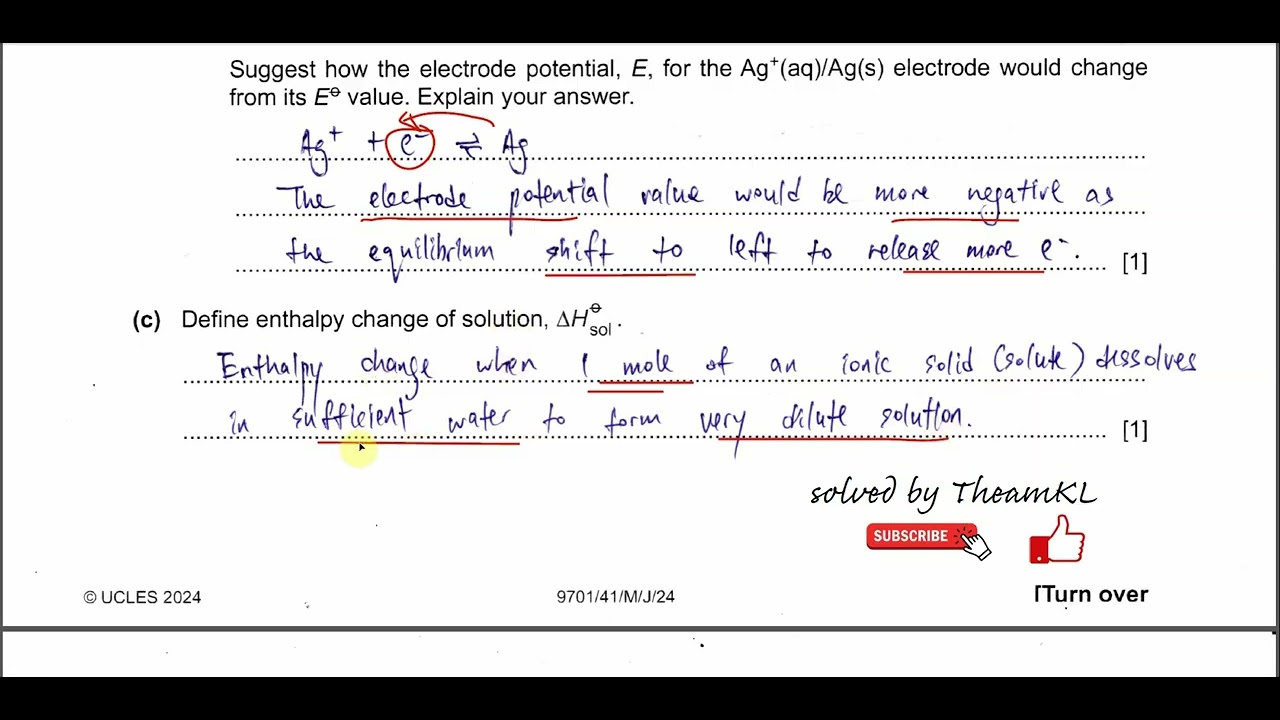 Suggest how the electrode potential, E, for the Ag⁺(aq)/Ag(s) electrode would change
from its E⦵ value. Explain your answer.
Ag⁺ + e⁻ ⇌ Ag
The electrode potential value would be more negative as
the equilibrium shift to left to release more e⁻. [1]
(c) Define enthalpy change of solution, ΔH⦵sol.
Enthalpy change when 1 mole of an ionic solid (solute) dissolves
in sufficient water to form very dilute solution. [1]
solved by TheamKL
SUBSCRIBE
© UCLES 2024 9701/41/M/J/24 [Turn over